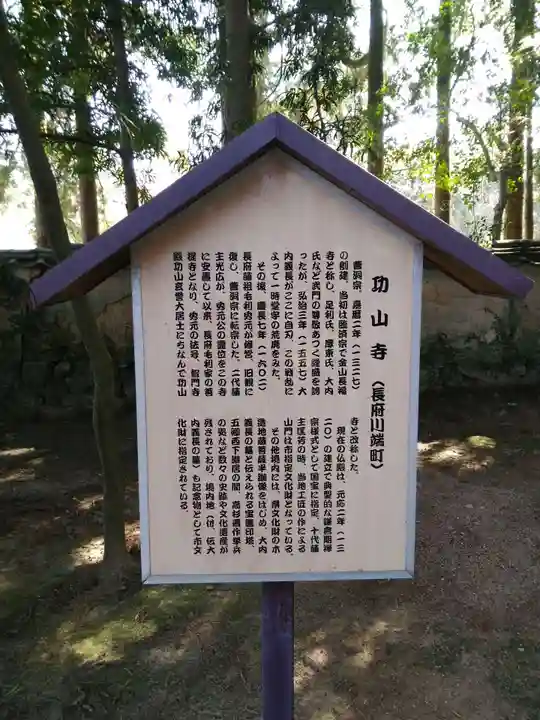 功山寺(長府川端町)
曹洞宗、嘉暦二年(一三二七)
の創建、当初は臨済宗で金山長福
寺と称し、足利氏、厚東氏、大内
氏など武門の尊敬あつく隆盛を誇
ったが、弘治三年(一五五七)大
内義長がここに自刃、この戦乱に
よって一時堂宇の荒廃をみた。
その後、慶長七年(一六〇二)
長府藩祖毛利秀元が修営、旧観に
復し、曹洞宗に転宗した。二代藩
主光広が、秀元公の霊位をこの寺
に安置して以来、長府毛利家の菩
提寺となり、秀元の法号、智門寺
殿功山玄誉大居士にちなんで功山
寺と改称した。
現在の仏殿は、元応二年(一三
二〇)の建立で典型的な鎌倉期禅
宗様式として国宝に指定、十代藩
主匡芳の時、当地工匠の作による
山門は市指定文化財となっている。
その他境内には、県文化財の木
造地蔵菩薩半跏像をはじめ、大内
義長の墓と伝えられる宝篋印塔、
五卿西下潜居の間、高杉晋作挙兵
の処など数々の史跡や文化遺産が
残されており、境内地(付、伝大
内義長の墓)も記念物として市文
化財に指定されている。